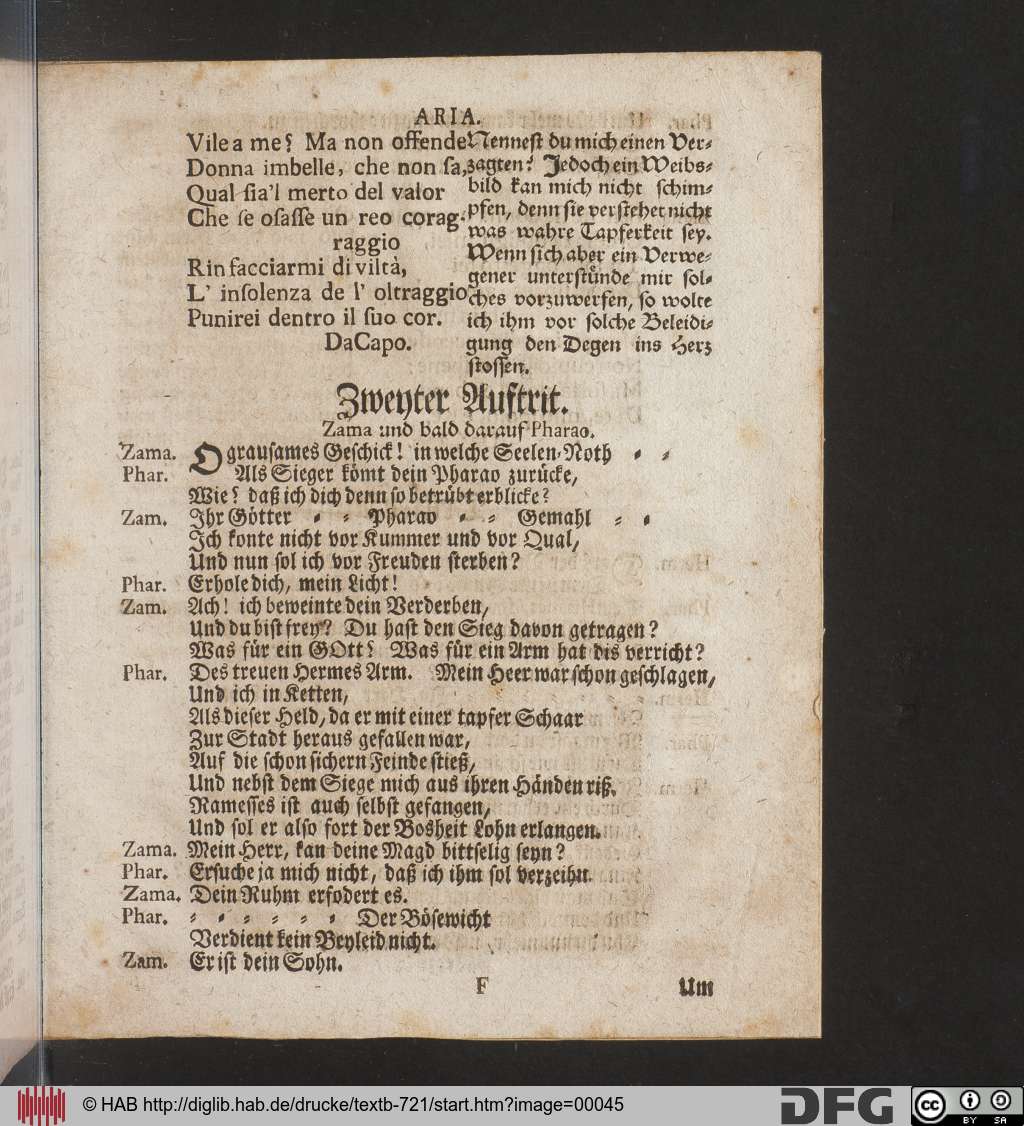 ARIA.
Vile a me? Ma non offende
Donna imbelle, che non sa,
Qual ſia'l merto del valor
Che ſe oſaſſe un reo corag-
raggio
Rinfacciarmi di viltà,
L' inſolenza de l' oltraggio
Punirei dentro il ſuo cor.
DaCapo.
Nenneſt du mich einen Ver-
zagten? Jedoch ein Weibs-
bild kan mich nicht ſchim-
pfen, denn ſie verſtehet nicht
was wahre Tapferkeit ſey.
Wenn ſich aber ein Verwe-
gener unterſtünde mir ſol-
ches vorzuwerfen, ſo wolte
ich ihm vor ſolche Beleidi-
gung den Degen ins Herz
ſtoſſen.
Zweyter Auftrit.
Zama und bald darauf Pharao.
Zama. O grauſames Geſchick! in welche Seelen-Noth - -
Phar. Als Sieger kömt dein Pharao zurücke,
Wie? daß ich dich denn ſo betrübt erblicke?
Zam. Ihr Götter - - Pharao - - Gemahl - -
Ich konte nicht vor Kummer und vor Qual,
Und nun ſol ich vor Freuden ſterben?
Phar. Erhole dich, mein Licht!
Zam. Ach! ich beweinte dein Verderben,
Und du biſt frey? Du haſt den Sieg davon getragen?
Was für ein GOtt? Was für ein Arm hat dis verricht?
Phar. Des treuen Hermes Arm. Mein Heer war ſchon geſchlagen,
Und ich in Ketten,
Als dieſer Held, da er mit einer tapfer Schaar
Zur Stadt heraus gefallen war,
Auf die ſchon ſichern Feinde ſtieß,
Und nebſt dem Siege mich aus ihren Händen riß.
Rameſſes iſt auch ſelbſt gefangen,
Und ſol er alſo fort der Bosheit Lohn erlangen.
Zama. Mein Herr, kan deine Magd bittſelig ſeyn?
Phar. Erſuche ja mich nicht, daß ich ihm ſol verzeihn.
Zama. Dein Ruhm erfodert es.
Phar. - - - - - - Der Böſewicht
Verdient kein Beyleid nicht.
Zam. Er iſt dein Sohn.
F Um
© HAB http://diglib.hab.de/drucke/textb-721/start.htm?image=00045
DFG
cc BY SA